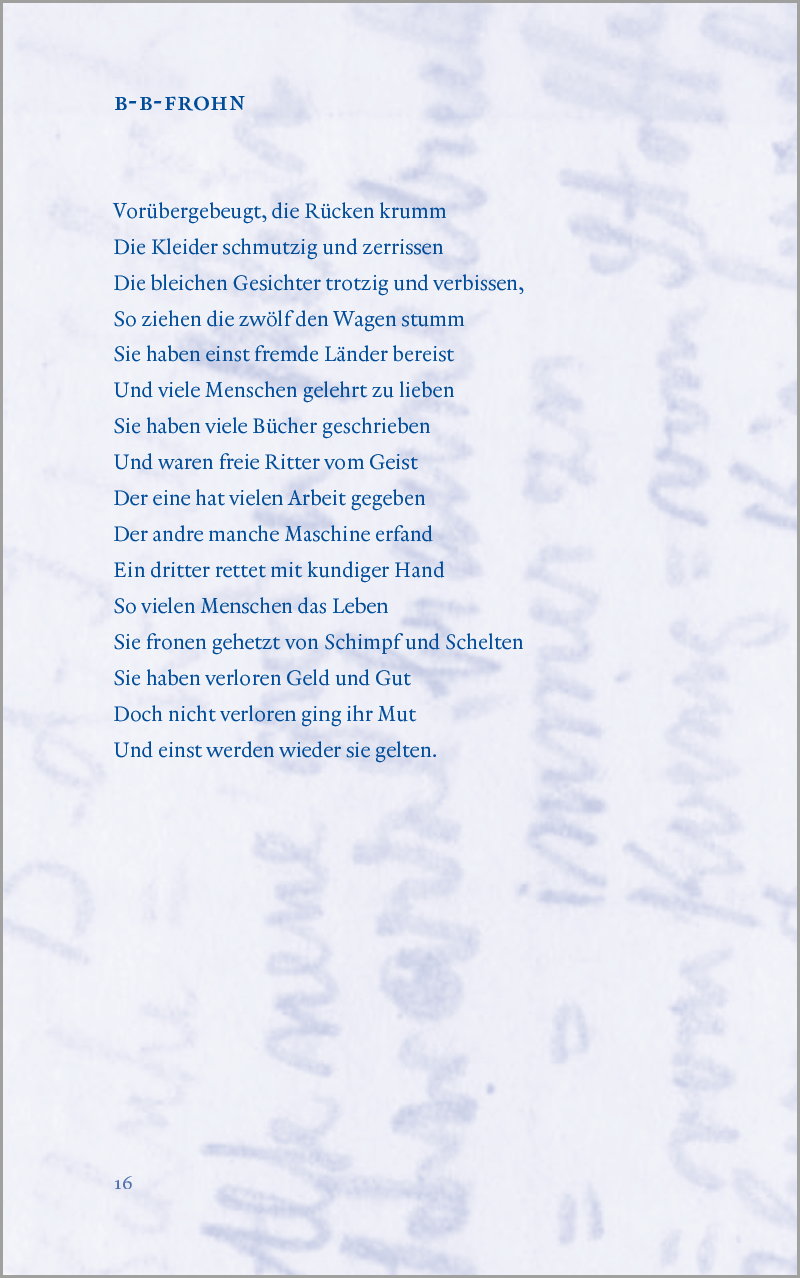 B-B-FROHN
Vorübergebeugt, die Rücken krumm
Die Kleider schmutzig und zerrissen
Die bleichen Gesichter trotzig und verbissen,
So ziehen die zwölf den Wagen stumm
Sie haben einst fremde Länder bereist
Und viele Menschen gelehrt zu lieben
Sie haben viele Bücher geschrieben
Und waren freie Ritter vom Geist
Der eine hat vielen Arbeit gegeben
Der andre manche Maschine erfand
Ein dritter rettet mit kundiger Hand
So vielen Menschen das Leben
Sie fronen gehetzt von Schimpf und Schelten
Sie haben verloren Geld und Gut
Doch nicht verloren ging ihr Mut
Und einst werden wieder sie gelten.
16